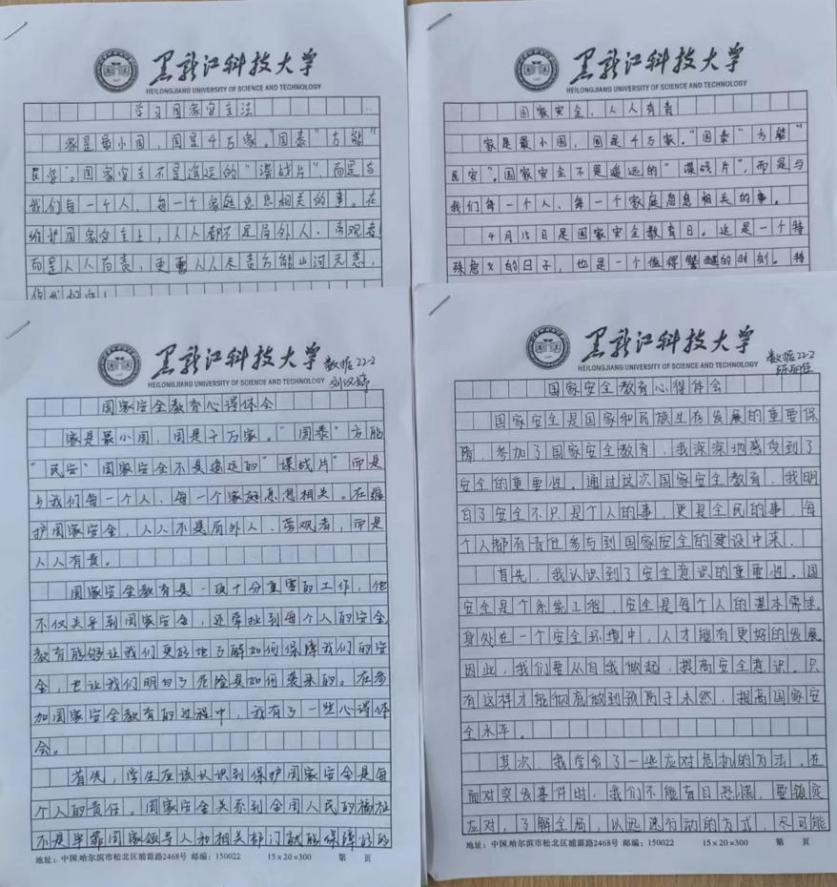 黑龙江科技大学
HEILONGJIANG UNIVERSITY OF SCIENCE AND TECHNOLOGY
学习国家安全法
家是最小国，国是千万家。“国泰”方能“
民安”。国家安全不是遥远的“谍战片”，而是与
我们每一个人、每一个家庭息息相关的事。在
维护国家安全上，人人都不是局外人、旁观者
而是人人有责，更需人人尽责方能山河无恙，
黑龙江科技大学
HEILONGJIANG UNIVERSITY OF SCIENCE AND TECHNOLOGY
国家安全，人人有责
家是最小国，国是千万家。“国泰”方能“
民安”。国家安全不是遥远的“谍战片”，而是与
我们每一个人、每一个家庭息息相关的事。
4月15日是国家安全教育日。这是一个特
殊意义的日子，也是一个值得警醒的时刻。
黑龙江科技大学
HEILONGJIANG UNIVERSITY OF SCIENCE AND TECHNOLOGY
数据22-2
国家安全教育心得体会
家是最小国，国是千万家。“国泰”方能
“民安”国家安全不是遥远的“谍战片”而是
与我们每一个人、每一个家庭息息相关。在维
护国家安全，人人不是局外人、旁观者，而是
人人有责。
国家安全教育是一项十分重要的工作，他
不仅关乎到国家安全，还牵扯到每个人的安全
教育能够让我们更好地了解如何保障我们的安
全，也让我们明白了危险是如何袭来的。在参
加国家安全教育的过程中，我有了一些心得体
会。
首先，学生应该认识到保护国家安全是每
个人的责任。国家安全关系到全国人民的福祉
不是单靠国家领导人和相关部门就能保障好的
地址：中国.哈尔滨市松北区浦源路2468号 邮编：150022 15×20=300 第 页
黑龙江科技大学
HEILONGJIANG UNIVERSITY OF SCIENCE AND TECHNOLOGY
数据22-2
国家安全教育心得体会
国家安全是国家和民族生存发展的重要保
障，参加了国家安全教育，我深深地感受到了
安全的重要性。通过这次国家安全教育，我明
白了安全不只是个人的事，更是全民的事，每
个人都有责任参与到国家安全的建设中来。
首先，我认识到了安全意识的重要性。国
安全是个系统工程，安全是每个人的基本需求。
身处在一个安全环境中，人才能有更好的发展
因此，我们要从自我做起，提高安全意识。只
有这样才能彻底做到预防于未然，提高国家安
全水平。
其次，我学会了一些应对危机的方法。在
面对突发事件时，我们不能盲目恐慌，要镇定
应对，了解全局，以迅速行动的方式，尽可能
地址：中国.哈尔滨市松北区浦源路2468号 邮编：150022 15×20=300 第 页